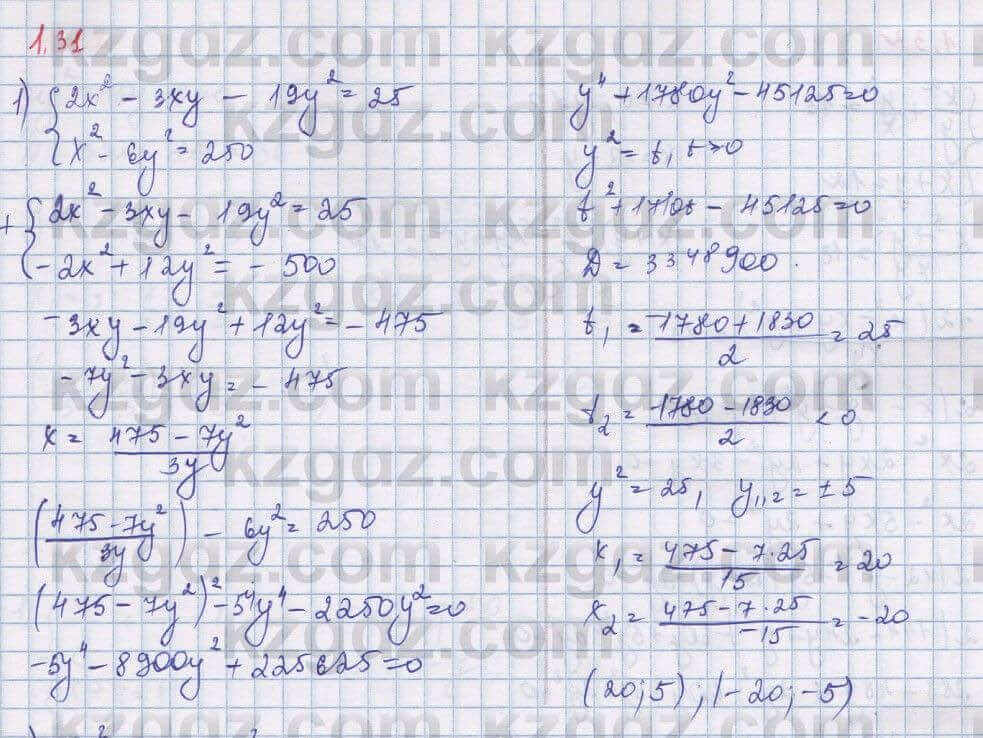 1.31
1) {2x² - 3xy - 19y² = 25
{x² - 6y² = 250
+ {2x² - 3xy - 19y² = 25
{-2x² + 12y² = - 500
-3xy - 19y² + 12y² = - 475
-7y² - 3xy = - 475
x = (475 - 7y²)/3y
((475 - 7y²)/3y) - 6y² = 250
(475 - 7y²)² - 54y⁴ - 2250y² = 0
-5y⁴ - 8900y² + 225625 = 0
y⁴ + 1780y² - 45125 = 0
y² = t, t > 0
t² + 1780t - 45125 = 0
D = 3348900.
t₁ = (-1780 + 1830)/2 = 25
t₂ = (-1780 - 1830)/2 < 0
y² = 25, y₁,₂ = ±5
x₁ = (475 - 7·25)/15 = 20
x₂ = (475 - 7·25)/-15 = -20
(20; 5); (-20; -5)
kzgdz.com